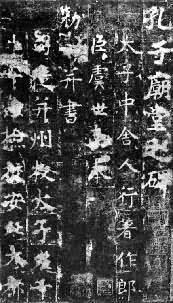 孔子廟堂之碑
太子中舍人行著作郎
臣虞世南奉
勑撰并書
司徒并州牧太子左千
檢校安北大都